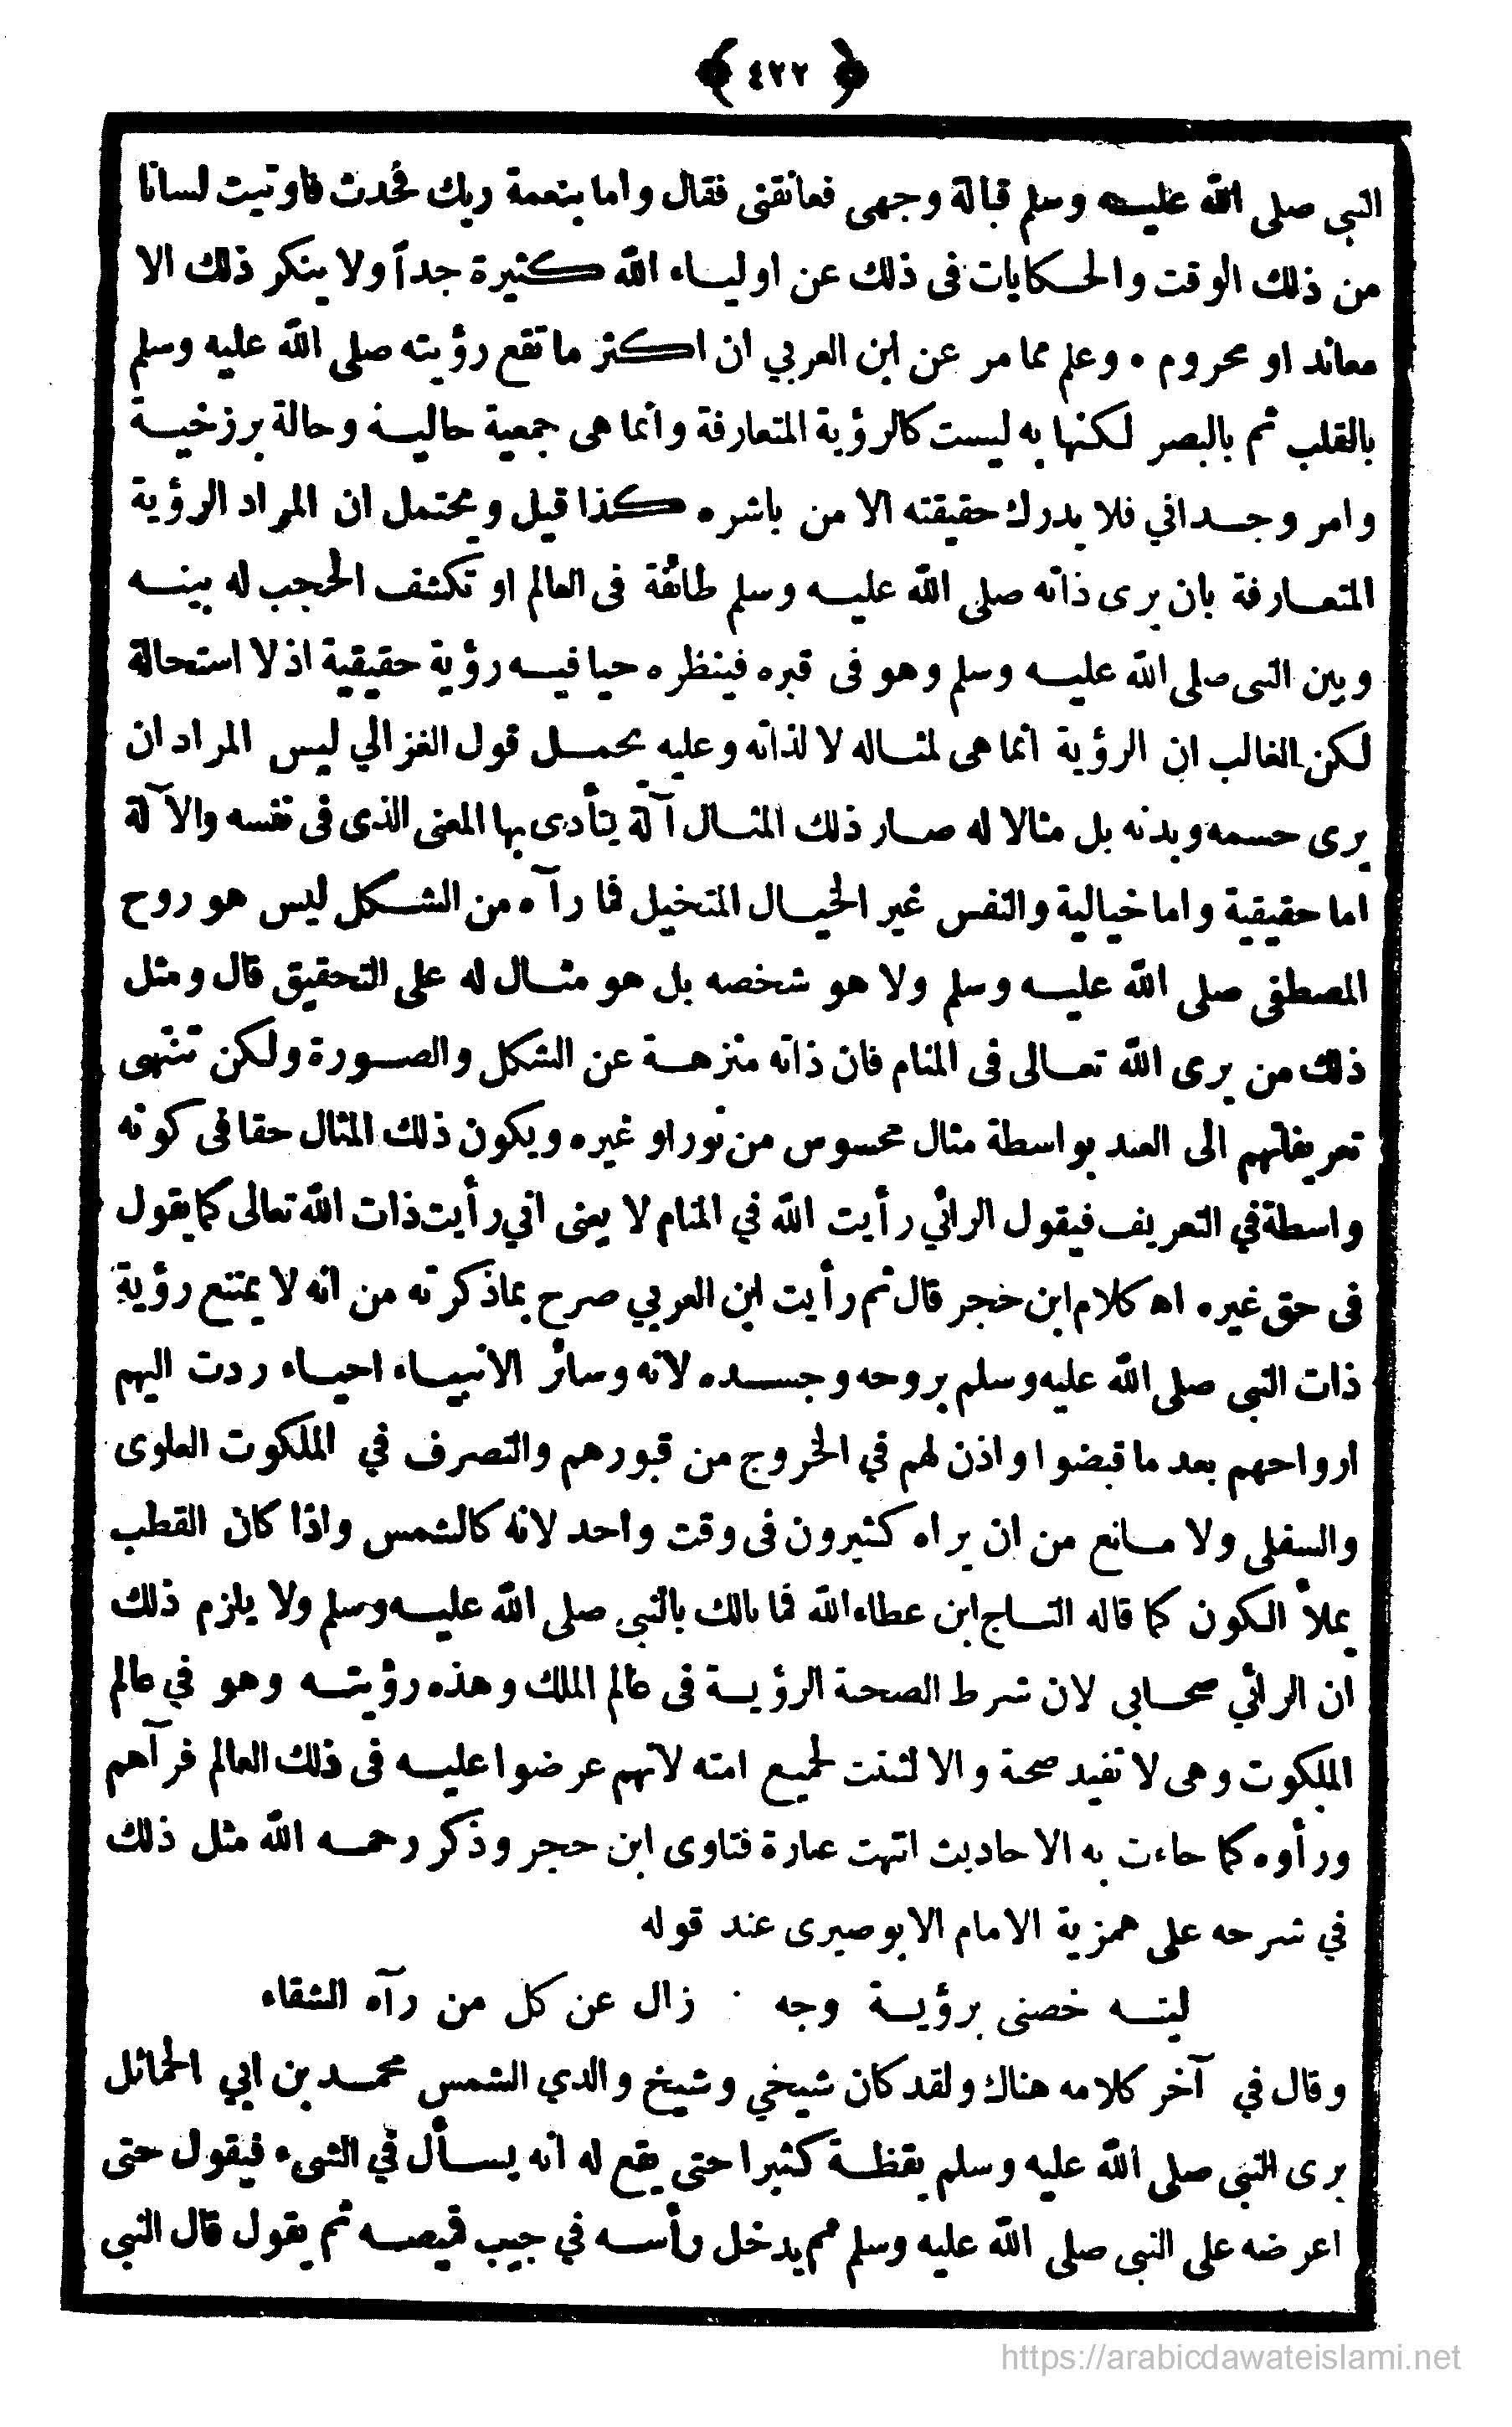 ﴿ ٤٢٢ ﴾
النبى صلى الله عليه وسلم قبالة وجهى فعانقنى فقال واما بنعمة ربك فحدث فاوتيت لسانا
من ذلك الوقت والحكايات فى ذلك عن اولياء الله كثيرة جداً ولا ينكر ذلك الا
معاند او محروم ٠ وعلم مما مر عن ابن العربي ان اكثر ما تقع رؤيته صلى الله عليه وسلم
بالقلب ثم بالبصر لكنها به ليست كالرؤية المتعارفة وانما هى جمعية حالية وحالة برزخية
وامر وجداني فلا يدرك حقيقته الا من باشره كذا قيل ويحتمل ان المراد الرؤية
المتعارفة بان يرى ذاته صلى الله عليه وسلم طائفة فى العالم او تكشف الحجب له بينه
وبين النبى صلى الله عليه وسلم وهو فى قبره فينظره حيا فيه رؤية حقيقية اذ لا استحالة
لكن الغالب ان الرؤية انما هى لمثاله لا لذاته وعليه يحمل قول الغزالي ليس المراد ان
يرى جسمه وبدنه بل مثالا له صار ذلك المثال آلة يتأدى بها المعنى الذى فى نفسه والآلة
اما حقيقية واما خيالية والنفس غير الخيال المتخيل فما رآه من الشكل ليس هو روح
المصطفى صلى الله عليه وسلم ولا هو شخصه بل هو مثال له على التحقيق قال ومثل
ذلك من يرى الله تعالى فى المنام فان ذاته منزهة عن الشكل والصورة ولكن تنتهى
تعريفاتهم الى العبد بواسطة مثال محسوس من نور او غيره ويكون ذلك المثال حقا فى كونه
واسطة في التعريف فيقول الرائي رأيت الله في المنام لا يعنى اني رأيت ذات الله تعالى كما يقول
فى حق غيره اه كلام ابن حجر قال ثم رأيت ابن العربي صرح بما ذكرته من انه لا يمتنع رؤية
ذات النبى صلى الله عليه وسلم بروحه وجسده لانه وسائر الانبياء احياء ردت اليهم
ارواحهم بعد ما قبضوا واذن لهم في الخروج من قبورهم والتصرف في الملكوت العلوى
والسفلى ولا مانع من ان يراه كثيرون فى وقت واحد لانه كالشمس واذا كان القطب
يملأ الكون كما قاله التاج ابن عطاء الله فما بالك بالنبي صلى الله عليه وسلم ولا يلزم ذلك
ان الرائي صحابى لان شرط الصحبة الرؤية فى عالم الملك وهذه رؤيته وهو في عالم
الملكوت وهى لا تفيد صحبة والا لثبتت لجميع امته لانهم عرضوا عليه فى ذلك العالم فرآهم
ورأوه كما جاءت به الاحاديث انتهت عبارة فتاوى ابن حجر وذكر رحمه الله مثل ذلك
في شرحه على همزية الامام الابوصيرى عند قوله
ليته خصنى برؤية وجه ٠ زال عن كل من رآه الشقاء
وقال في آخر كلامه هناك ولقد كان شيخي وشيخ والدي الشمس محمد بن ابي الحمائل
يرى النبى صلى الله عليه وسلم يقظة كثيرا حتى يقع له انه يسأل في الشيء فيقول حتى
اعرضه على النبى صلى الله عليه وسلم ثم يدخل رأسه في جيب قميصه ثم يقول قال النبى
https://arabicdawateislami.net